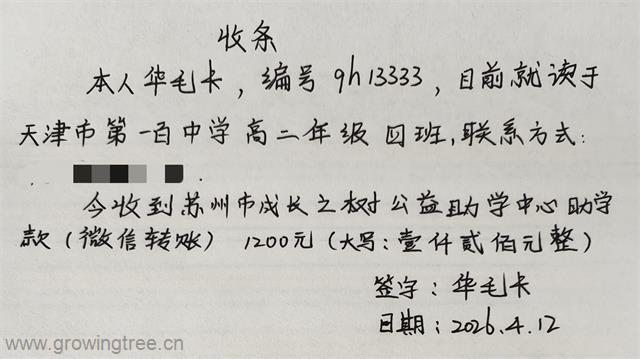 收条
本人华毛卡，编号 gh13333，目前就读于
天津市第一百中学高二年级四班，联系方式：
今收到苏州市成长之树公益助学中心助学
款（微信转账） 1200元（大写：壹仟贰佰元整）
签字：华毛卡
日期：2026.4.12
www.growingtree.cn